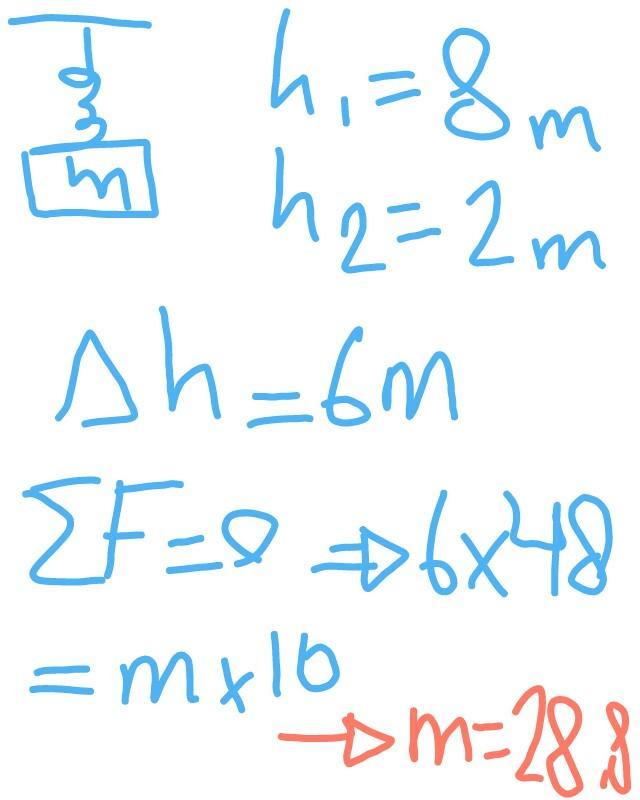 m
h₁ = 8 m
h₂ = 2 m
Δh = 6m
ΣF = 0 ⇒ 6x48
= m x 10
→ m = 28,8